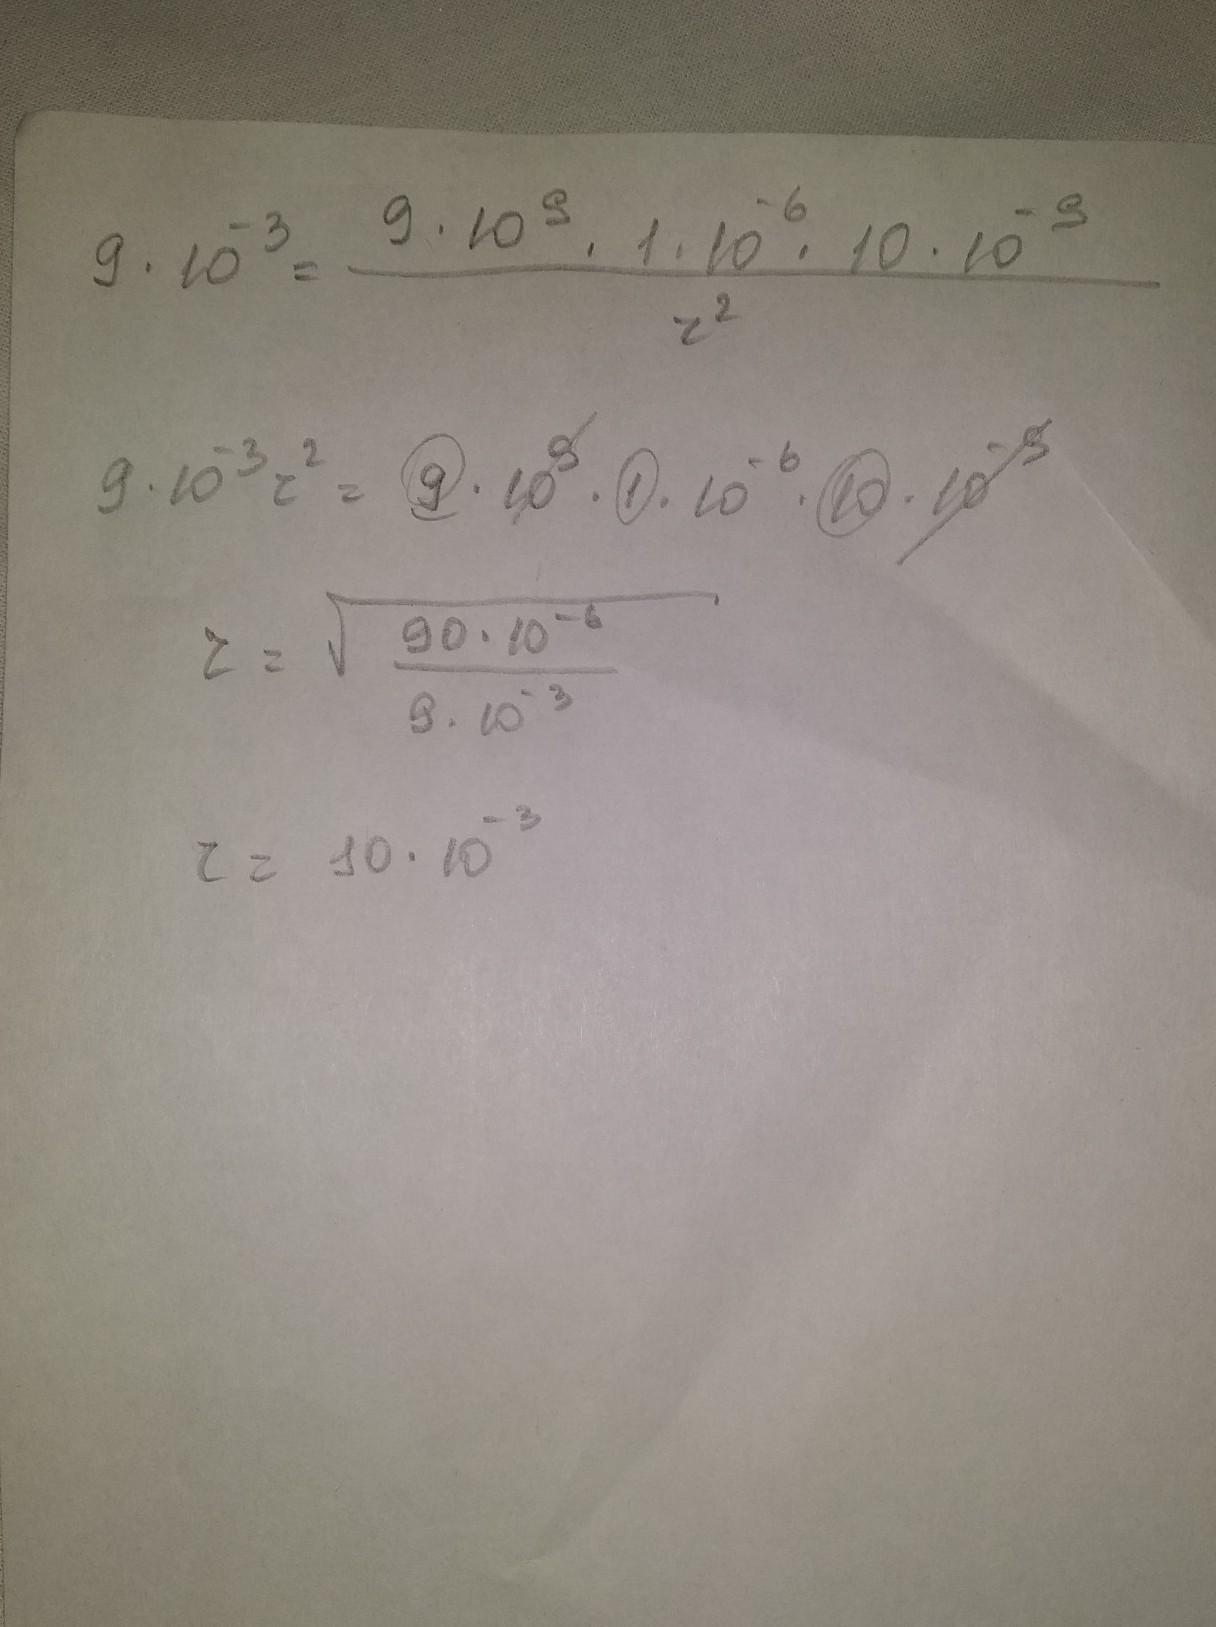 9 · 10⁻³ = 9 · 10⁹ · 1 · 10⁻⁶ · 10 · 10⁻⁹ / r²
9 · 10⁻³ r² = 9 · 10⁹ · 1 · 10⁻⁶ · 10 · 10⁻⁹
r = √(90 · 10⁻⁶ / 9 · 10⁻³)
r = 10 · 10⁻³